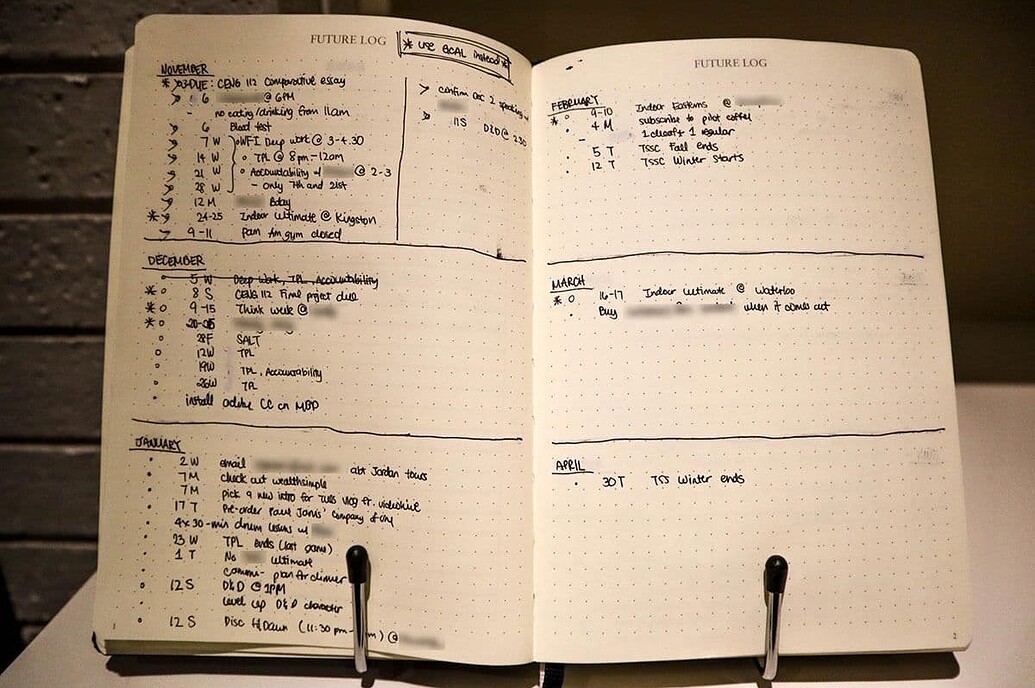 FUTURE LOG
* USE GCAL instead *
NOVEMBER
* > 23 DUE: CENG 112 Comparative essay
> 6 @ 6PM
- no eating/drinking from 11am
> 6 Blood test
> 7 W WFI Deep work @ 3-4.30
> 14 W TPL @ 8pm-12am
> 21 W Accountability w/ @ 2-3
> 28 W - only 7th and 21st
> 12 M Bday
* > 24-25 Indoor Ultimate @ Kingston
> 9-11 Pan Am gym closed
> confirm Dec 2 speaking w/
> 11S D&D @ 230
DECEMBER
5 W Deep Work, TPL, Accountability
* 8 S CENG 112 Final project due
* 9-15 Think week @
*
28F SALT
12W TPL
19W TPL, Accountability
26W TPL
install Adobe CC on MBP
JANUARY
2 W email abt Jordan tours
7 M check out wealthsimple
7 M pick a new intro for Tues vlog ft. videohive
17 T Pre-order Paul Jarvis' Company of One
4x 30-min drum lessons w/
23 W TPL ends (last game)
1 T No Ultimate
comms- plan for dinner
12 S D&D @ 1PM
Level up D&D character
12 S Disc til Dawn (11:30 pm- ) @
1
FUTURE LOG
FEBRUARY
* 9-10 Indoor Easterns @
4 M subscribe to pilot coffee
- 1 decaf + 1 regular
5 T TSSC Fall ends
12 T TSSC Winter starts
MARCH
* 16-17 Indoor Ultimate @ Waterloo
Buy when it comes out
APRIL
30 T TSS Winter ends
2